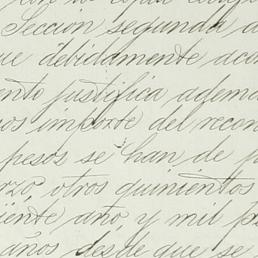 Seccion segunda a
ue debidamente aco
ento justifica adema
os importe del recon
pesos se han de p
rzo, otros quinientos
iente año, y mil p
años desde que se